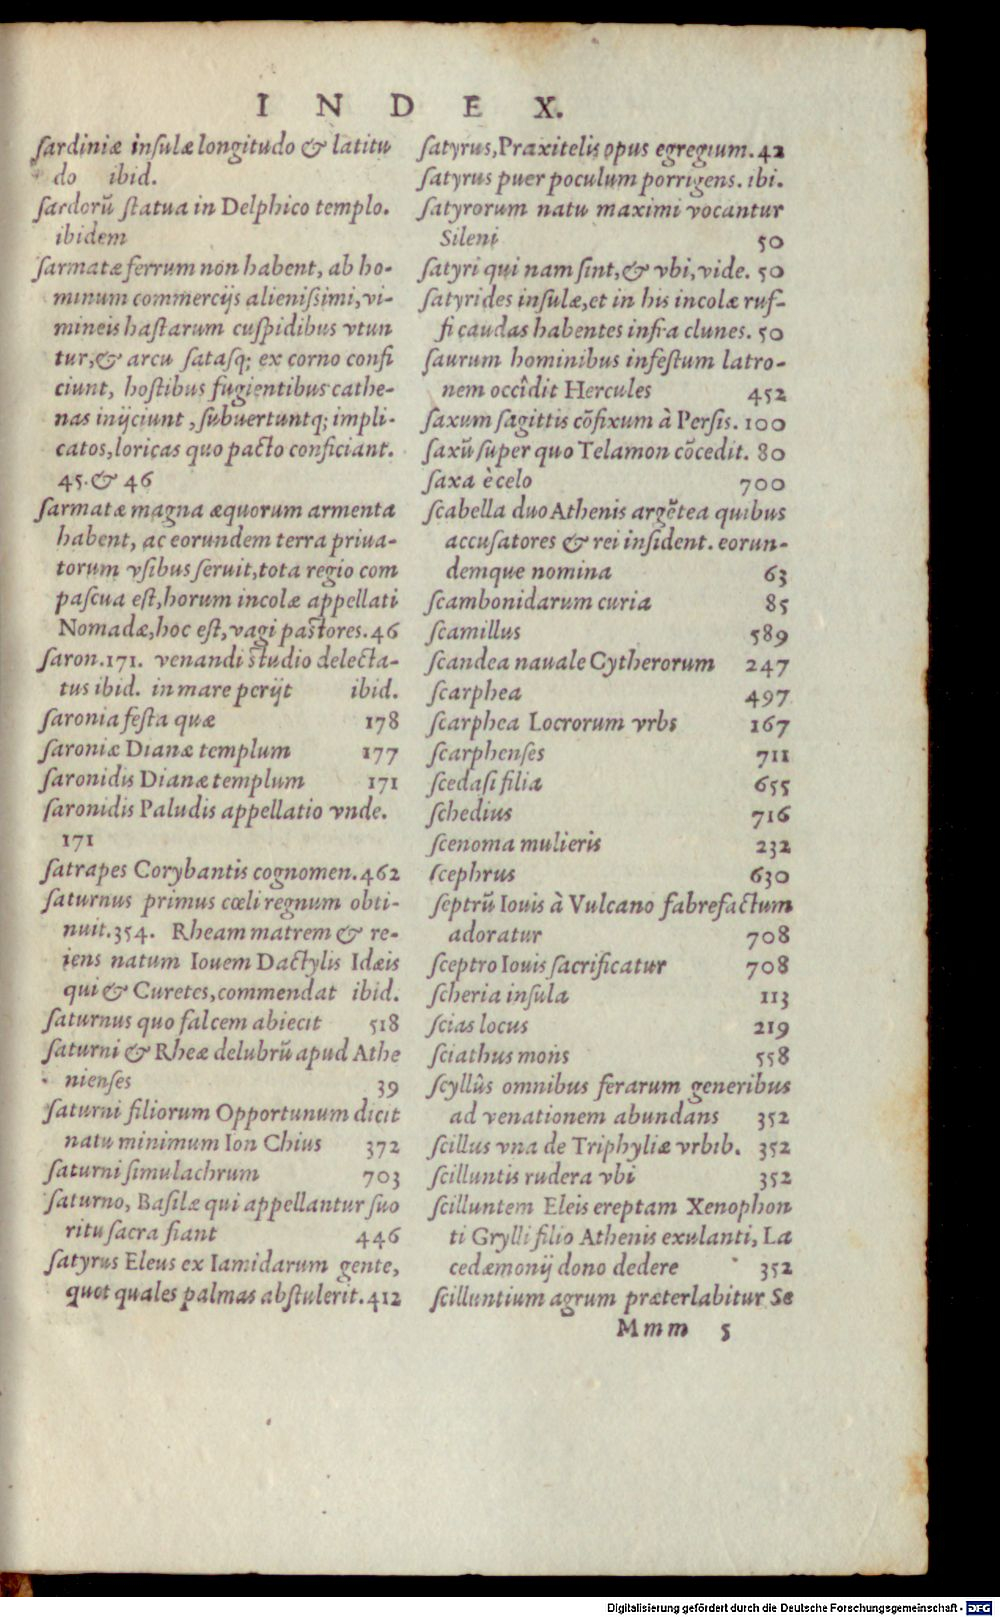 INDEX.
ſardiniæ inſulæ longitudo & latitu
do ibid.
ſardorũ ſtatua in Delphico templo.
ibidem
ſarmatæ ferrum non habent, ab ho-
minum commercijs alieniſsimi, vi-
mineis haſtarum cuſpidibus vtun
tur, & arcu ſatasq; ex corno confi
ciunt, hoſtibus fugientibus cathe-
nas inijciunt, ſubuertuntq; impli-
catos, loricas quo pacto conficiant.
45. & 46
ſarmatæ magna æquorum armenta
habent, ac eorundem terra priua-
torum vſibus ſeruit, tota regio com
paſcua eſt, horum incolæ appellati
Nomadæ, hoc eſt, vagi paſtores. 46
ſaron. 171. venandi ſtudio delecta-
tus ibid. in mare perijt ibid.
ſaronia feſta quæ 178
ſaroniæ Dianæ templum 177
ſaronidis Dianæ templum 171
ſaronidis Paludis appellatio vnde.
171
ſatrapes Corybantis cognomen. 462
ſaturnus primus cœli regnum obti-
nuit. 354. Rheam matrem & re-
iens natum Iouem Dactylis Idæis
qui & Curetes, commendat ibid.
ſaturnus quo falcem abiecit 518
ſaturni & Rheæ delubrũ apud Athe
nienſes 39
ſaturni filiorum Opportunum dicit
natu minimum Ion Chius 372
ſaturni ſimulachrum 703
ſaturno, Baſilæ qui appellantur ſuo
ritu ſacra fiant 446
ſatyrus Eleus ex Iamidarum gente,
quot quales palmas abſtulerit. 412
ſatyrus, Praxitelis opus egregium. 42
ſatyrus puer poculum porrigens. ibi.
ſatyrorum natu maximi vocantur
Sileni 50
ſatyri qui nam ſint, & vbi, vide. 50
ſatyrides inſulæ, et in his incolæ ruf-
fi caudas habentes infra clunes. 50
ſaurum hominibus infeſtum latro-
nem occîdit Hercules 452
ſaxum ſagittis cõfixum à Perſis. 100
ſaxũ ſuper quo Telamon cõcedit. 80
ſaxa è celo 700
ſcabella duo Athenis argẽtea quibus
accuſatores & rei inſident. eorun-
demque nomina 63
ſcambonidarum curia 85
ſcamillus 589
ſcandea nauale Cytherorum 247
ſcarphea 497
ſcarphea Locrorum vrbs 167
ſcarphenſes 711
ſcedaſi filia 655
ſchedius 716
ſcenoma mulieris 232
ſcephrus 630
ſeptrũ Iouis à Vulcano fabrefactum
adoratur 708
ſceptro Iouis ſacrificatur 708
ſcheria inſula 113
ſcias locus 219
ſciathus mons 558
ſcyllûs omnibus ferarum generibus
ad venationem abundans 352
ſcillus vna de Triphyliæ vrbib. 352
ſcilluntis rudera vbi 352
ſcilluntem Eleis ereptam Xenophon
ti Grylli filio Athenis exulanti, La
cedæmonij dono dedere 352
ſcilluntium agrum præterlabitur Se
Mmm 5
Digitalisierung gefördert durch die Deutsche Forschungsgemeinschaft - DFG